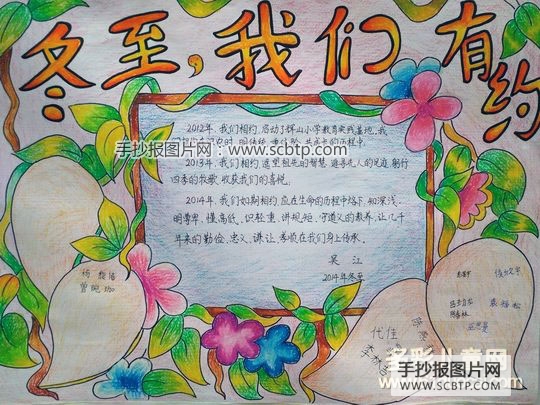 冬至,我们有约
手抄报图片网
WWW.SCBTP.COM
2012年,我们相约,启动了辉山小学教育实践基地,我
2013年,我们相约,追望祖先的智慧,追寻先人的足迹,躬行
四季的牧歌,收获我们的喜悦。
2014年,我们如期相约,应在生命的历程中烙下,知深浅,
明尊卑,懂高低,识轻重,讲规矩,守道义的教养,让几千
年来的勤俭、忠义、谦让、孝顺在我们身上传承。
吴江
2014年冬至
杨
曾婉珈
代佳
多彩儿童网
手抄报图片网
WWW.SCBTP.COM